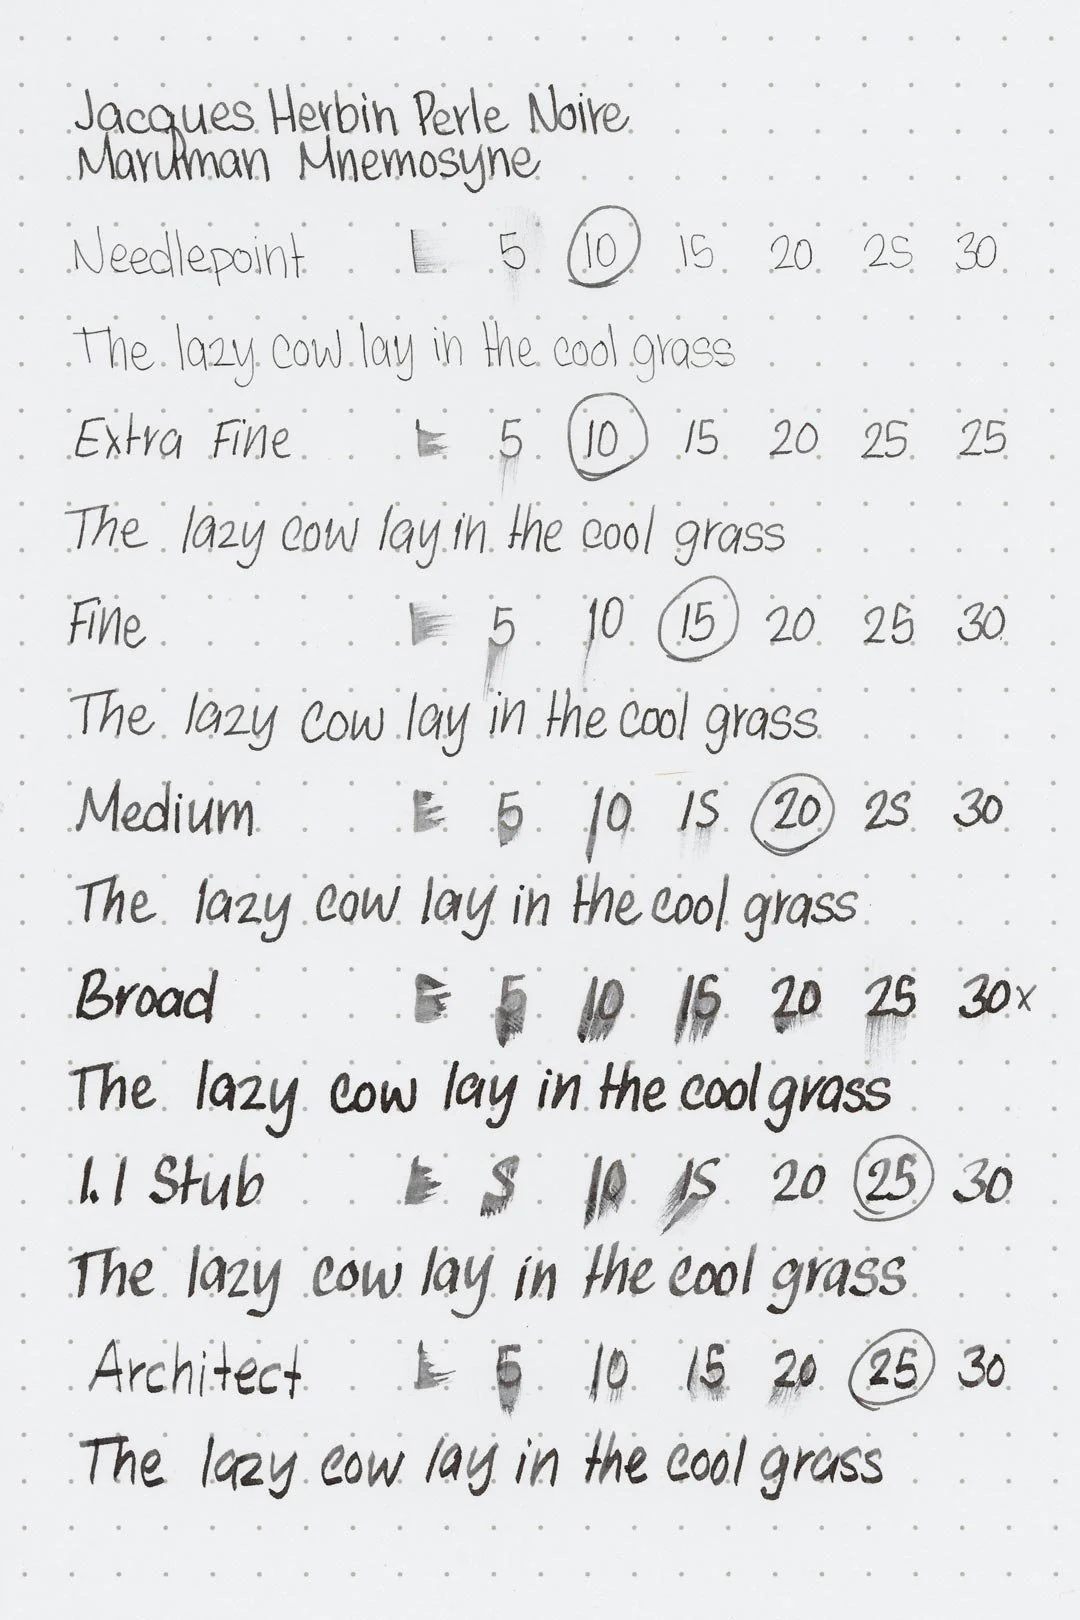 Jacques Herbin Perle Noire
Maruman Mnemosyne
Needlepoint E 5 10 15 20 25 30
The lazy cow lay in the cool grass
Extra Fine E 5 10 15 20 25 25
The lazy cow lay in the cool grass
Fine E 5 10 15 20 25 30
The lazy cow lay in the cool grass
Medium E 5 10 15 20 25 30
The lazy cow lay in the cool grass
Broad E 5 10 15 20 25 30x
The lazy cow lay in the cool grass
1.1 Stub E 5 10 15 20 25 30
The lazy cow lay in the cool grass
Architect E 5 10 15 20 25 30
The lazy cow lay in the cool grass